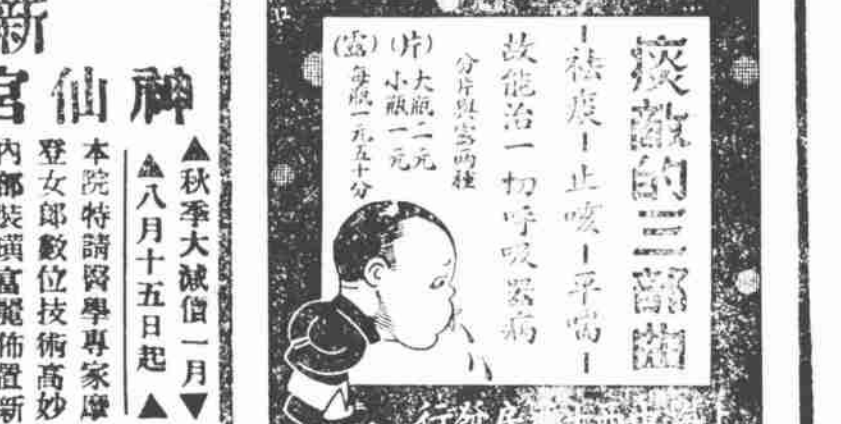 12
痰敵的三部曲
－祛痰－止咳－平喘－
故能治一切呼吸器病
分片與露兩種
(片)大瓶二元
小瓶一元
(露)每瓶一元五十分
行發
新
神仙宮
▲秋季大減價一月▼
▲八月十五日起▲
本院特請醫學專家摩
登女郎數位技術高妙
內部裝璜富麗佈置新